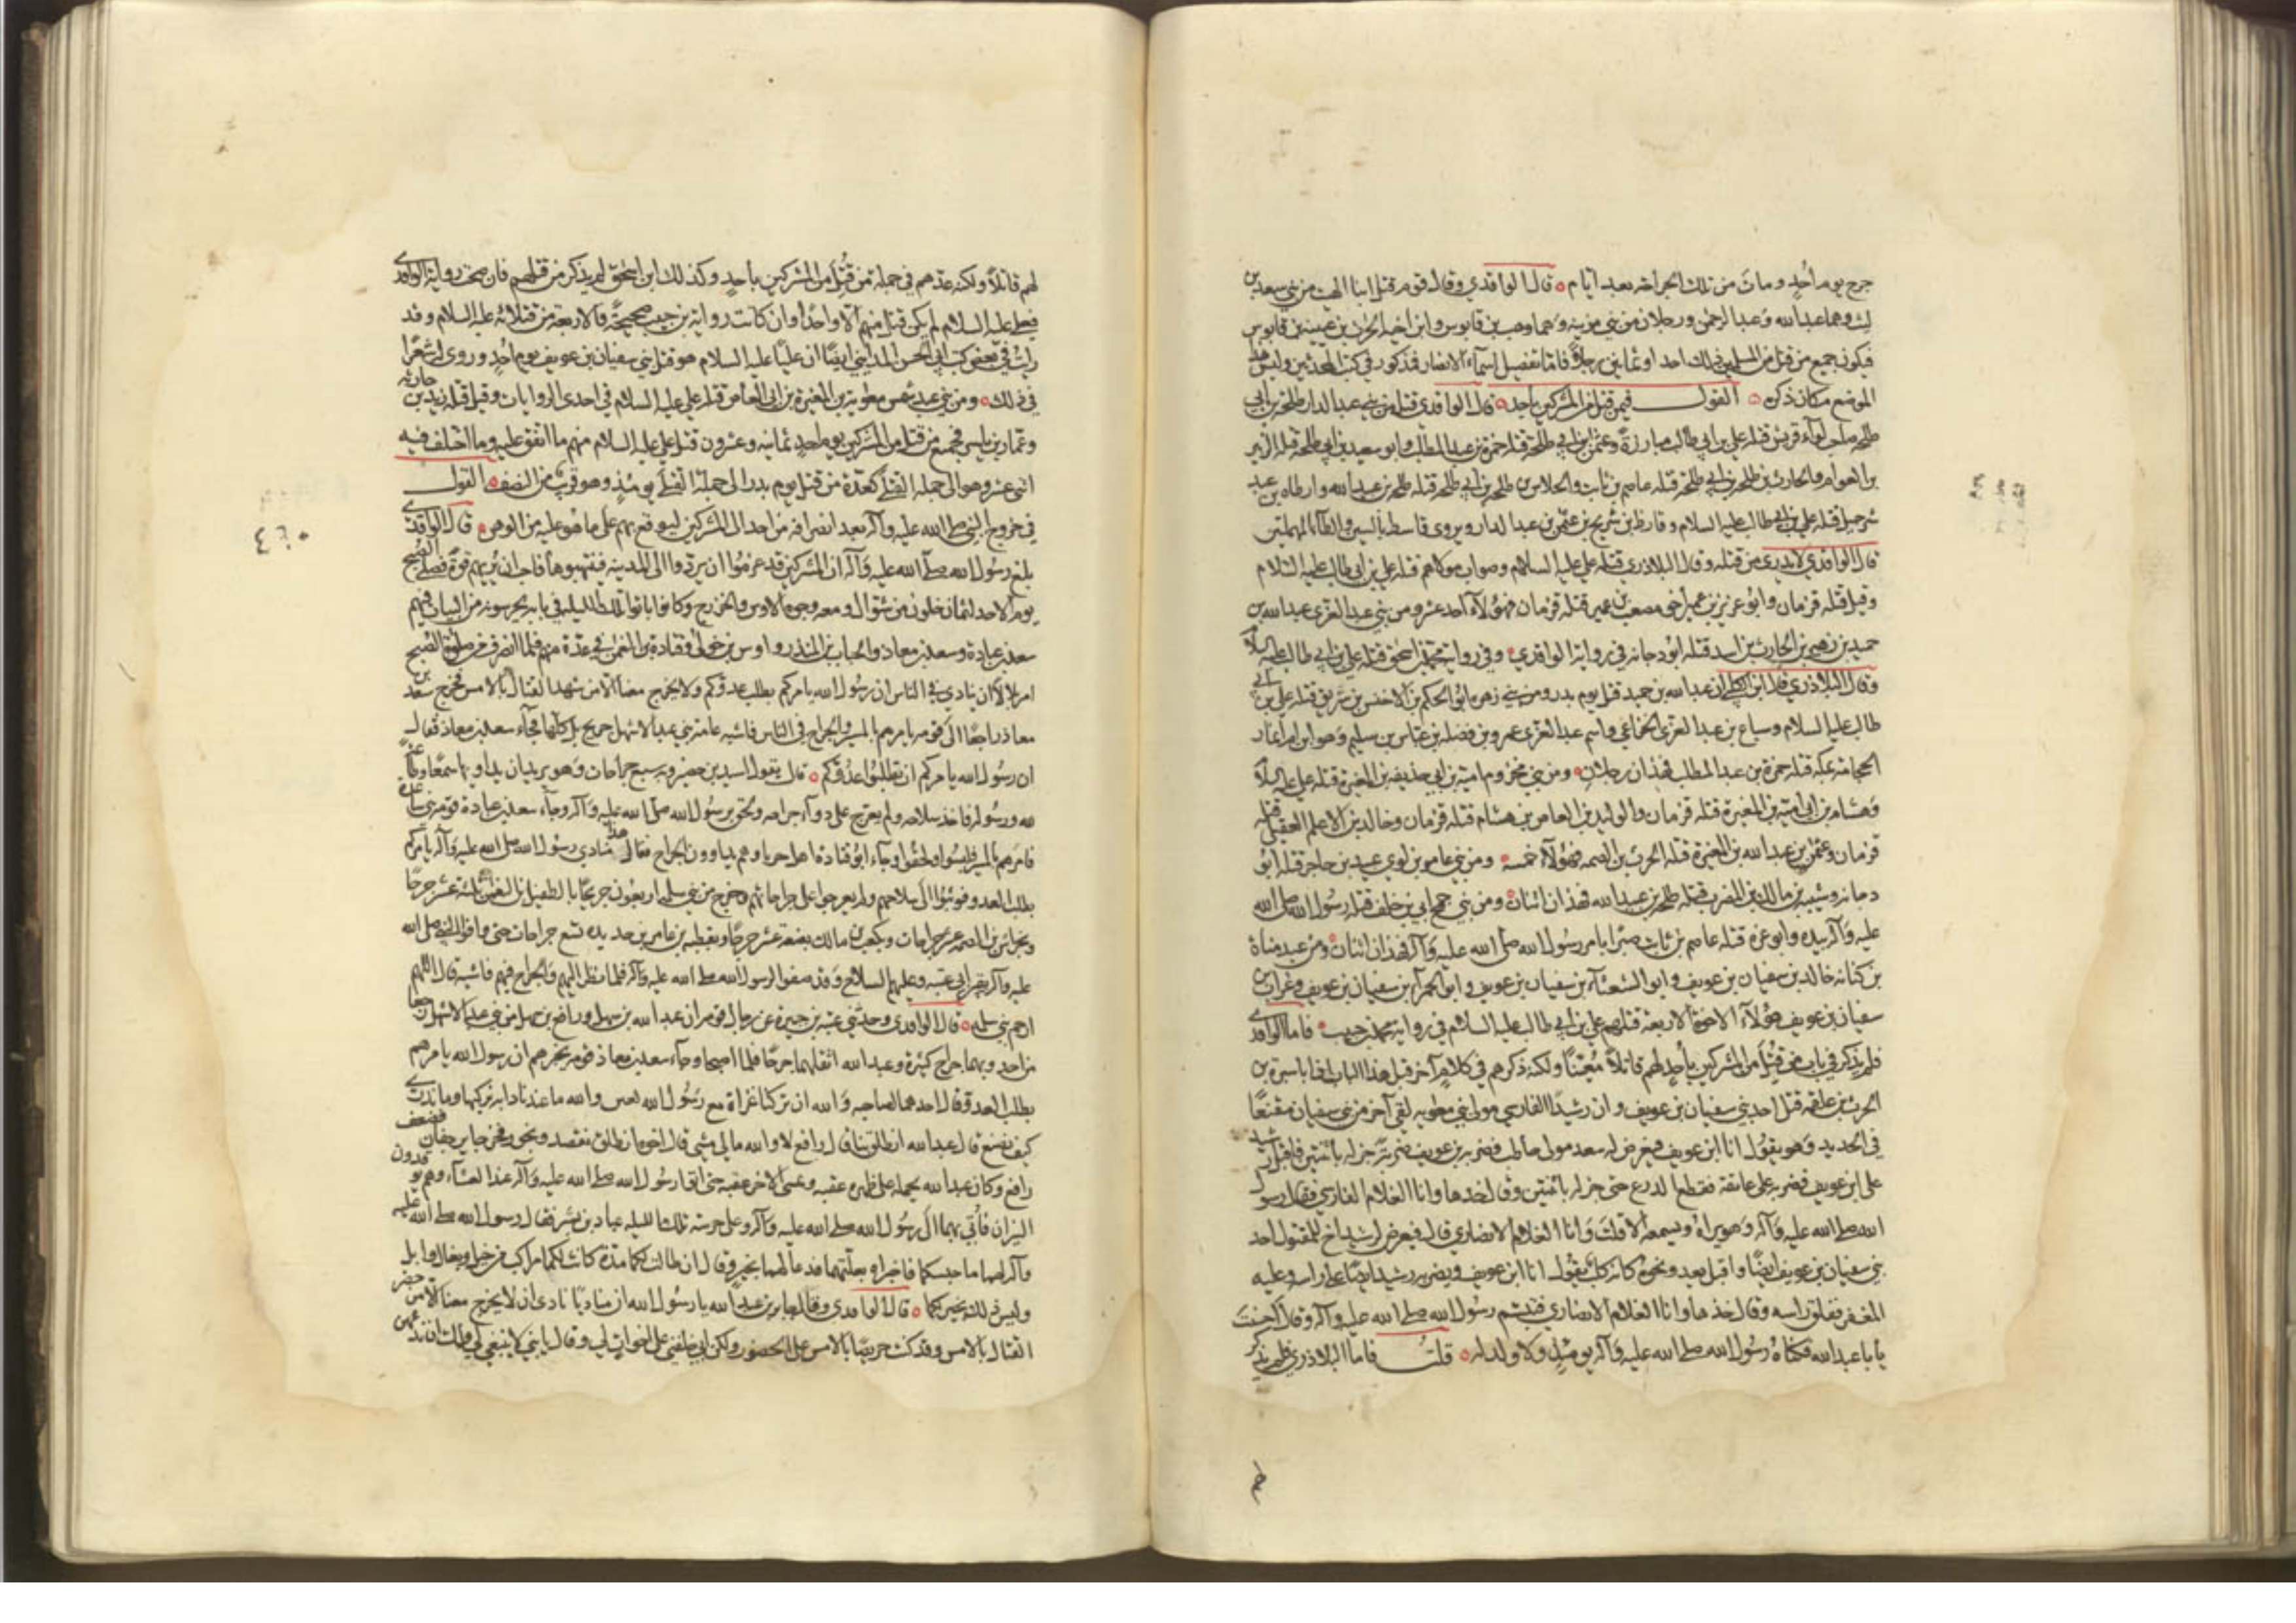 جرح يوم أحد ومات من تلك الجراحة بعد ايام ٥ قال الواقدي وقال قوم قتل ابنا الهبت من بني سعد بن
ليث وهما عبدالله وعبد الرحمن ورجلان من بني مزينة وهما وهب بن قابوس وابن اخيه الحرث بن عتبة بن قابوس
فيكون جميع من قتل من المسلمين ذلك احدا وثمانين رجلاً فاما تفصيل اسماء الانصار فمذكور في كتب المحدثين وليس هذا
الموضع مكان ذكره ٥ القول فيمن قتل من المشركين بأحد ٥ قال الواقدي قتل من بني عبد الدار طلحة بن ابي
طلحة صاحب لواء قريش قتله علي بن ابي طالب مبارزة وعثمن بن ابي طلحة قتله حمزة بن عبد المطلب وابو سعيد بن ابي طلحة قتله
بن العوام والحارث بن طلحة بن ابي طلحة قتله عاصم بن ثابت والجلاس بن طلحة بن ابي طلحة قتله طلحة بن عبيد الله وارطاه بن عبد
شرحبيل قتله علي بن ابي طالب عليه السلام وقارظ بن شريح بن عثمن بن عبد الدار ويروى قاسط بالسين والطاء المهملتين
قال الواقدي لا يدرى من قتله وقال البلاذري قتله علي عليه السلام وصواب مولاهم قتله علي بن ابي طالب عليه السلام
وقيل قتله قزمان وابو عزيز بن عمير اخي مصعب بن عمير قتله قزمان فهؤلاء احد عشر ومن بني عبد العزى عبدالله بن
حميد بن زهير بن الحارث بن اسد قتله ابو دجانه في رواية الواقدي وفي رواية محمد بن اسحق قتله علي بن ابي طالب عليه السلام
وقال البلاذري قال ابن الكلبي ان عبد الله بن حميد قتل يوم بدر ومن بني زهره ابو الحكم بن الاخنس بن شريق قتله علي بن ابي
طالب عليه السلام وسباع بن عبد العزى الخزاعي واسم عبد العزى عمرو بن فضله بن عباس بن سليم وهو ابن ام انمار
الحجامة بمكه قتله حمزة بن عبد المطلب فهذان رجلان ٥ ومن بني مخزوم امية بن ابي حذيفه بن المغيرة قتله علي عليه السلام
وهشام بن ابي امية بن المغيرة قتله قزمان والوليد بن العاص بن هشام قتله قزمان وخالد بن الاعلم العقيلي قتله
قزمان وعثمن بن عبد الله بن المغيرة قتله الحرث بن الصمه فهؤلاء خمسه ٥ ومن بني عامر بن لوي عبيد بن حاجز قتله ابو
دجانه وشيبه بن مالك بن المضرب قتله طلحة بن عبيد الله فهذان اثنان ٥ ومن بني جمح ابي بن خلف قتله رسول الله صلى الله
عليه وآله بيده وابو عزه قتله عاصم بن ثابت صبرًا بامر رسول الله صلى الله عليه وآله فهذان اثنان ٥ ومن عبد مناة
بن كنانه خالد بن سفيان بن عويف وابو الشعثاء بن سفيان بن عويف وابو الحمراء بن سفيان بن عويف وغراب بن
سفيان بن عويف هؤلاء الاخوة الاربعة قتلهم علي بن ابي طالب عليه السلام في رواية محمد بن حبيب ٥ فاما الواقدي
فلم يذكر في باب من قتل من المشركين بأحد لهم قاتلاً مُعيّنًا ولكنه ذكرهم في كلام آخر قبل هذا الباب ان ابا سبرة بن
الحرث بن علقمه قتل احد بني سفيان بن عويف وان رشيدًا الفارسي مولى بني معويه لقي آخر من بني سفيان مقنعًا
في الحديد وهو يقول انا ابن عويف فيعرض له سعد مولى حاطب فضربه بن عويف ضربة جزله باثنتين فاقبل رشيد
على ابن عويف فضربه على عاتقه فقطع الدرع حتى جزله باثنتين وقال خذها وانا الغلام الفارسي فقال رسول
الله صلى الله عليه وآله وهو يراه ويسمعه الا قلت وانا الغلام الانصاري قال فيعرض لرشيد اخ للمقتول احد
بني سفيان بن عويف ايضًا واقبل يعدو نحوه كانه كلب يقول انا ابن عويف ويضربه رشيد ايضًا على راسه وعليه
المغفر ففلق راسه وقال خذها وانا الغلام الانصاري فتبسم رسول الله صلى الله عليه وآله وقال احسنت
يا ابا عبدالله فكناه رسول الله صلى الله عليه وآله يومئذ ولا ولد له ٥ قلت فاما البلاذري فلم يذكر
لهم قاتلاً ولكنه عدهم في جملة من قُتل من المشركين بأحد وكذلك ابن اسحق لم يذكر من قتلهم فان صحت رواية الواقدي
فعلي عليه السلام لم يكن قتل منهم الا واحدًا وان كانت رواية بن حبيب صحيحة فالاربعة من قتلائه عليه السلام وقد
رايت في بعض كتب ابي الحسن المدايني ايضًا ان عليًا عليه السلام هو قتل بني سفيان بن عويف يوم احد وروى له شعرًا
في ذلك ٥ ومن بني عبد شمس معوية بن المغيرة بن ابي العاص قتله علي عليه السلام في احدى الروايات وقيل قتله زيد بن حارثه
وعمار بن ياسر فجميع من قتل من المشركين يوم احد ثمانيه وعشرون قتل علي عليه السلام منهم ما اتفق عليه وما اختلف فيه
اثني عشر وهو الى جملة القتلى كعدة من قتل يوم بدر الى جملة القتلى يومئذ وهو قريب من النصف ٥ القول
في خروج النبي صلى الله عليه وآله بعد انصرافه من احد الى المشركين ليوقع بهم على ما هو عليه من الوهن ٥ قال الواقدي
بلغ رسول الله صلى الله عليه وآله ان المشركين قد عزموا ان يردوا الى المدينه فينهبوها فاحب ان يريهم قوة فصلى الصبح
يوم الاحد لثمان خلون من شوال ومعه وجوه الاوس والخزرج وكانوا باتوا تلك الليلة في بابه يحرسونه من البيات فيهم
سعد بن عبادة وسعد بن معاذ والحباب بن المنذر واوس بن خولي وقتادة بن النعمن في عدة منهم فلما انصرف من صلوة الصبح
امر بلالاً ان ينادي في الناس ان رسول الله يامركم بطلب عدوكم ولا يخرج معنا الا من شهد القتال بالامس فخرج سعد بن
معاذ راجعًا الى قومه يامرهم بالمسير والجراح في الناس فاشيه عامة بني عبد الاشهل جريح بل كلها فجاء سعد بن معاذ فقال
ان رسول الله يامركم ان تطلبوا عدوكم ٥ قال يقول اسيد بن حضير وبه سبع جراحات وهو يريد ان يداويها سمعًا وطاعة
لله ورسوله فاخذ سلاحه ولم يعرج على دواء جراحه ولحق برسول الله صلى الله عليه وآله وجاء سعد بن عبادة قومه بني ساعدة
فامرهم بالمسير فلبسوا ولحقوا وجاء ابو قتادة اهل خربا وهم يداوون الجراح فقال هذا منادي رسول الله صلى الله عليه وآله يامركم
بطلب العدو فوثبوا الى سلاحهم ولم يعرجوا على جراحاتهم فخرج من بني سلمه اربعون جريحًا بالطفيل بن النعمن ثلثة عشر جرحًا
وبخراش بن الصمه عشر جراحات وبكعب بن مالك بضعة عشر جرحًا وبقطبه بن عامر بن حديده تسع جراحات حتى وافوا النبي صلى الله
عليه وآله ببئر ابي عتبه وعليهم السلاح وقد صفوا لرسول الله صلى الله عليه وآله فلما نظر اليهم والجراح فيهم فاشية قال اللهم
ارحم بني سلمه ٥ قال الواقدي وحدثني عتبه بن جبيرة عن رجال قومه ان عبد الله بن سهل ورافع بن سهل من بني عبد الاشهل رجعا
من احد وبهما جراح كثيرة وعبد الله اثقلهما جرحًا فلما اصبحا وجاء سعد بن معاذ قومه يخبرهم ان رسول الله يامرهم
بطلب العدو قال احدهما لصاحبه والله ان تركنا غزاة مع رسول الله لغبن والله ما عندنا دابه نركبها وما ندري
كيف نصنع قال عبد الله انطلق بنا قال رافع لا والله ما لي مشي قال اخوه انطلق نقصد ونجوز فخرجا يزحفان فضعف
رافع وكان عبد الله يحمله على ظهره عقبه ويمشي الاخر عقبه حتى اتوا رسول الله صلى الله عليه وآله عند العشاء وهم يوقدون
النيران فأتي بهما الى رسول الله صلى الله عليه وآله وعلى حرسه تلك الليله عباد بن بشر فقال رسول الله صلى الله عليه
وآله لهما ما حبسكما فاخبراه بعلتهما فدعا لهما بخير وقال ان طالت لكما مدة كانت لكما مراكب من خيل وبغال وابل
وليس ذلك بخير لكما ٥ قال الواقدي وقال جابر بن عبد الله يا رسول الله ان مناديًا نادى ان لا يخرج معنا الا من حضر
القتال بالامس وقد كنت حريصًا بالامس على الحضور ولكن ابي خلفني على اخوات لي وقال يا بني لا ينبغي لي ولك ان ندعهن
٤٦٠